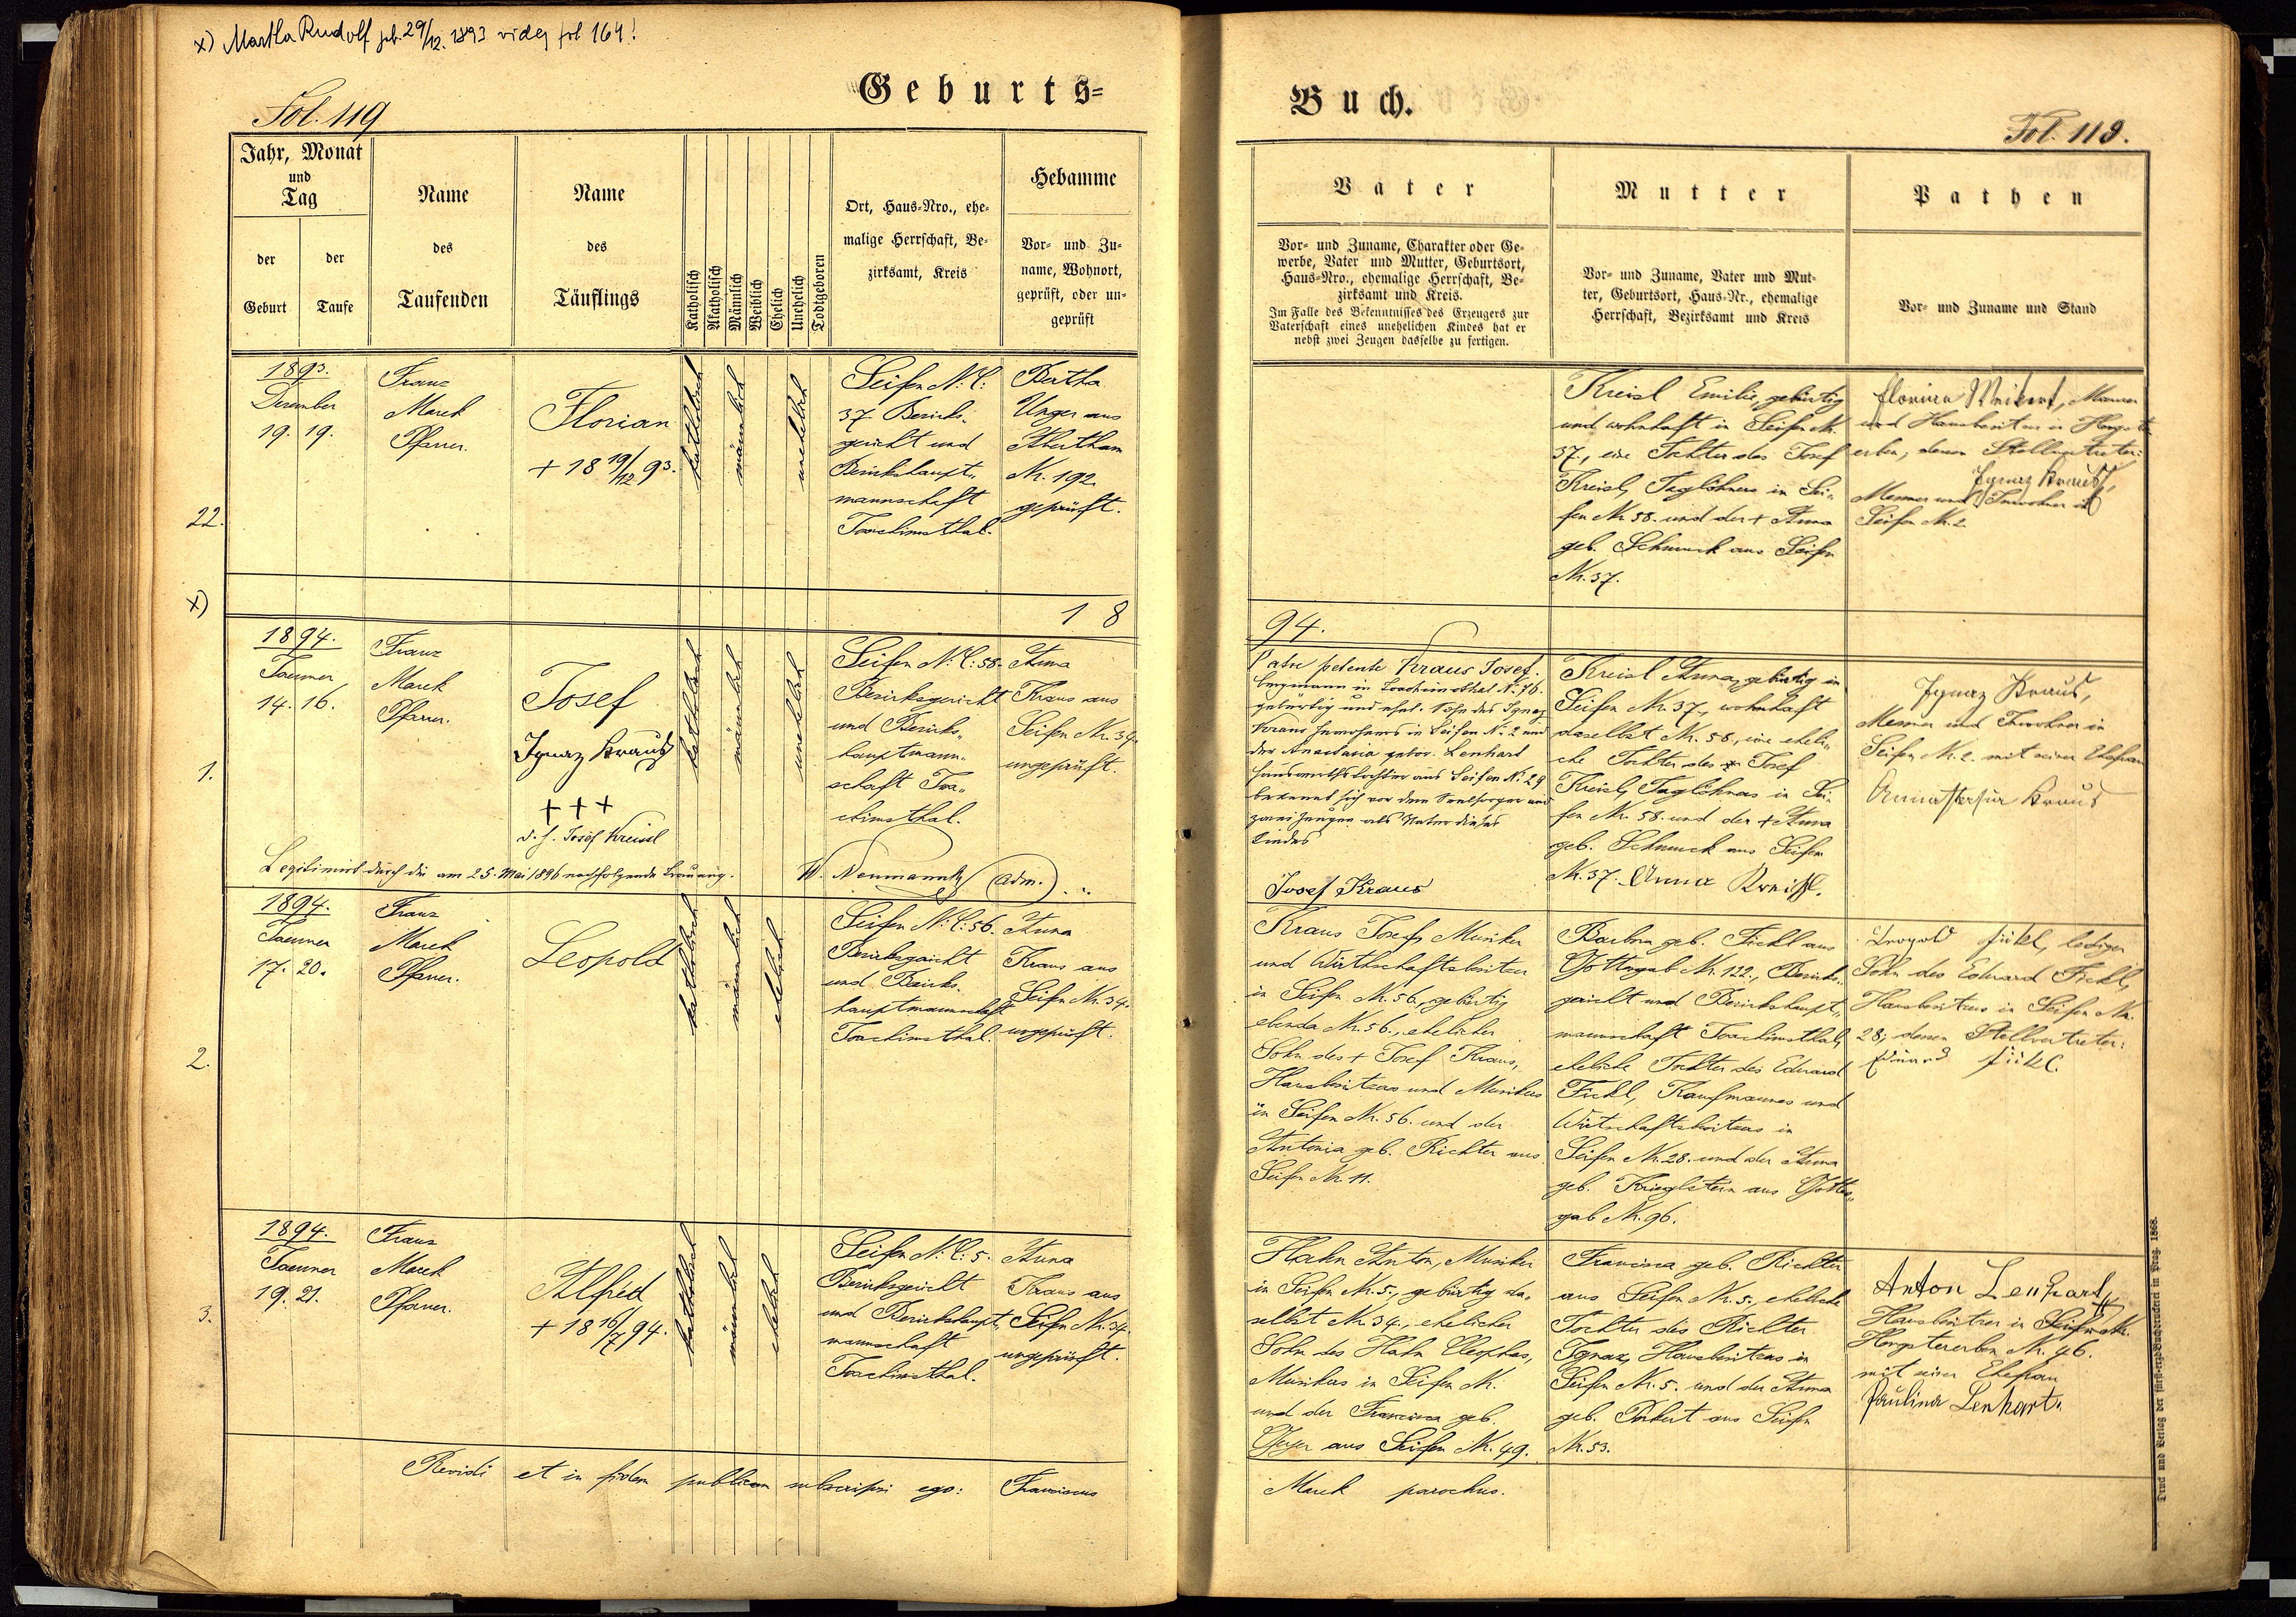 x) Martha Rudolf geb. 29/12. 1893 vide fol 164!
Geburts=
Fol. 119
Jahr, Monat
und
Tag
der
Geburt
der
Taufe
Name
des
Taufenden
Name
des
Täuflings
Katholisch
Akatholisch
Männlich
Weiblich
Ehelich
Unehelich
Todtgeboren
Ort, Haus=Nro., ehe=
malige Herrschaft, Be=
zirksamt, Kreis
Hebamme
Vor= und Zu=
name, Wohnort,
geprüft, oder un=
geprüft
22.
1893.
Dezember
19. 19.
Franz
Marek
Pfarrer.
Florian
+ 18 19/12 93.
katholisch
männlich
unehelich
Seifen N. C:
37. Bezirks-
gericht und
Bezirkshaupt-
mannschaft
Joachimsthal.
Bertha
Unger aus
Abertham
Nr. 192
geprüft.
x)
1 8
1.
1894.
Jaenner
14. 16.
Franz
Marek
Pfarrer.
Josef
Ignaz Kraus
+++
d. h. Josef Kreissl
katholisch
männlich
unehelich
Seifen N. C: 58.
Bezirksgericht
und Bezirks-
hauptmann-
schaft Joa-
chimsthal.
Anna
Kraus aus
Seifen Nr. 34.
ungeprüft.
Legitimirt durch die am 25. Mai 1896 nachfolgende Trauung. W. Neumann (Adm.)
2.
1894.
Jaenner
17. 20.
Franz
Marek
Pfarrer.
Leopold
katholisch
männlich
ehelich
Seifen N. C: 56.
Bezirksgericht
und Bezirks-
hauptmannschaft
Joachimsthal.
Anna
Kraus aus
Seifen Nr. 34.
ungeprüft.
3.
1894.
Jaenner
19. 21.
Franz
Marek
Pfarrer.
Alfred
+ 18 16/7 94.
katholisch
männlich
ehelich
Seifen N. C: 5.
Bezirksgericht
und Bezirkshaupt-
mannschaft
Joachimsthal.
Anna
Kraus aus
Seifen Nr. 34.
ungeprüft.
Revidi et in fidem publicam subscripsi ego: Franciscus
Buch.
Fol. 119.
Vater
Vor= und Zuname, Charakter oder Ge=
werbe, Vater und Mutter, Geburtsort,
Haus=Nro., ehemalige Herrschaft, Be=
zirksamt und Kreis.
Im Falle des Bekenntnisses des Erzeugers zur
Vaterschaft eines unehelichen Kindes hat er
nebst zwei Zeugen dasselbe zu fertigen.
Mutter
Vor= und Zuname, Vater und Mut=
ter, Geburtsort, Haus=Nr., ehemalige
Herrschaft, Bezirksamt und Kreis
Pathen
Vor= und Zuname und Stand
Kreisl Emilie, gebürtig
und wohnhaft in Seifen Nr.
37., eine Tochter des Josef
Kreisl, Taglöhners in Sei-
fen Nr. 58. und der + Anna
geb. Schmuck aus Seifen
Nr. 37.
Florian Weikert, Maurer
und Hausbesitzer in Hengst-
erben, dessen Stellvertreter:
Ignaz Kraus,
Mesner und Inwohner in
Seifen Nr. 2.
94.
Patre petente Kraus Josef,
Bergmann in Joachimsthal Nr. 76.
gebürtig und ehel. Sohn des Ignaz
Kraus Inwohners in Seifen Nr. 2 und
der Anastasia gebor. Lenhart
Hauswirthstochter aus Seifen Nr. 29
bekennt sich vor dem Seelsorger und
zwei Zeugen als Vater dieses
Kindes
Josef Kraus
Kreisl Anna, gebürtig in
Seifen Nr. 37., wohnhaft
daselbst Nr. 58., eine eheli-
che Tochter des Josef
Kreisl, Taglöhners in Sei-
fen Nr. 58. und der + Anna
geb. Schmuck aus Seifen
Nr. 37. Anna Kreissl.
Ignaz Kraus,
Mesner und Inwohner in
Seifen Nr. 2. mit seiner Ehefrau
Annastasia Kraus
Kraus Josef, Musiker
und Wirthschaftsbesitzer
in Seifen Nr. 56., gebürtig
ebenda Nr. 56., ehelicher
Sohn des + Josef Kraus,
Hausbesitzers und Musikers
in Seifen Nr. 56. und der
Antonia geb. Richter aus
Seifen Nr. 11.
Barbara geb. Fickl aus
Gottesgab Nr. 122., Bezirks-
gericht und Bezirkshaupt-
mannschaft Joachimsthal,
eheliche Tochter des Eduard
Fickl, Kaufmannes und
Wirtschaftsbesitzers in
Seifen Nr. 28. und der Anna
geb. Krieglstein aus Gottes-
gab Nr. 96.
Leopold Fickl, lediger
Sohn des Eduard Fickl,
Hausbesitzers in Seifen Nr.
28; dessen Stellvertreter:
Eduard Fickl.
Hahn Anton, Musiker
in Seifen Nr. 5., gebürtig da-
selbst Nr. 34., ehelicher
Sohn des Hahn Cleophas,
Musikers in Seifen Nr.
und der Franzisca geb.
Geyer aus Seifen Nr. 49.
Francisca geb. Richter
aus Seifen Nr. 5., eheliche
Tochter des Richter
Ignaz, Hausbesitzers in
Seifen Nr. 5. und der Anna
geb. Porkert aus Seifen
Nr. 53.
Anton Lenhart,
Hausbesitzer in Seifen Nr.
Hengstererben Nr. 46.
mit seiner Ehefrau
Paulina Lenhart.
Marek parochus.
Druck und Verlag der fürst=erzb. Buchdruckerei in Prag. 1868.